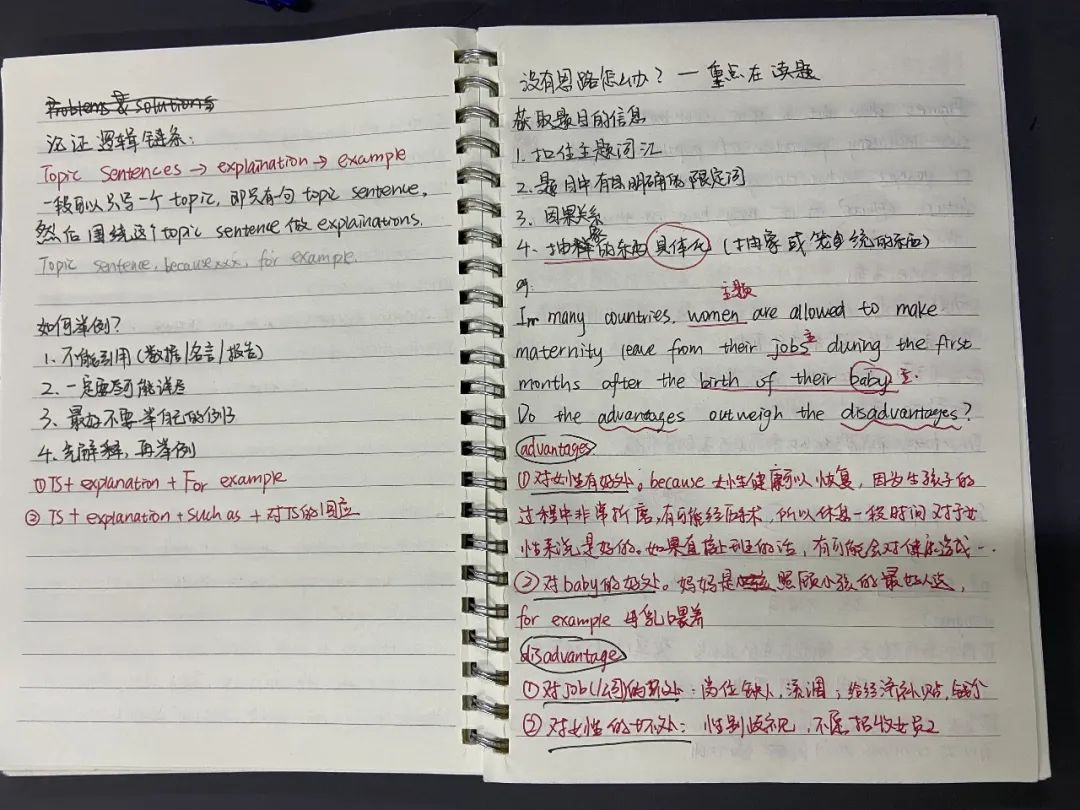 Problems & solutions
论证逻辑链条:
Topic Sentences → explaination → example
一段可以只写一个 topic, 即只有一句 topic sentence,
然后围绕这个 topic sentence 做 explainations.
Topic sentence, because xxx, for example.
如何举例?
1. 不能引用 (数据/名言/报告)
2. 一定要尽可能详尽
3. 最好不要举自己的例子
4. 先解释, 再举例
① TS + explanation + For example
② TS + explanation + such as + 对TS的回应
没有思路怎么办? — 重点在读题
获取题目的信息
1. 扣住主题词汇
2. 题目中有很明确的限定词
3. 因果关系
4. 抽象的东西具体化 (抽象或笼统的东西)
eg:
主题
In many countries, women are allowed to make
maternity leave from their jobs 主 during the first
months after the birth of their baby 主.
Do the advantages outweigh the disadvantages?
advantages
① 对女性有好处; because 女性健康可以恢复, 因为生孩子的
过程中非常折磨, 有可能经历手术, 所以休息一段时间对于女
性来说是好的. 如果直接上班的话, 有可能会对健康造成…
② 对baby的好处. 妈妈是照顾小孩的最好人选,
for example 母乳喂养
disadvantage
① 对job(公司)的坏处: 岗位缺人, 给经济补贴,
② 对女性的坏处: 性别歧视, 不愿招收女员工